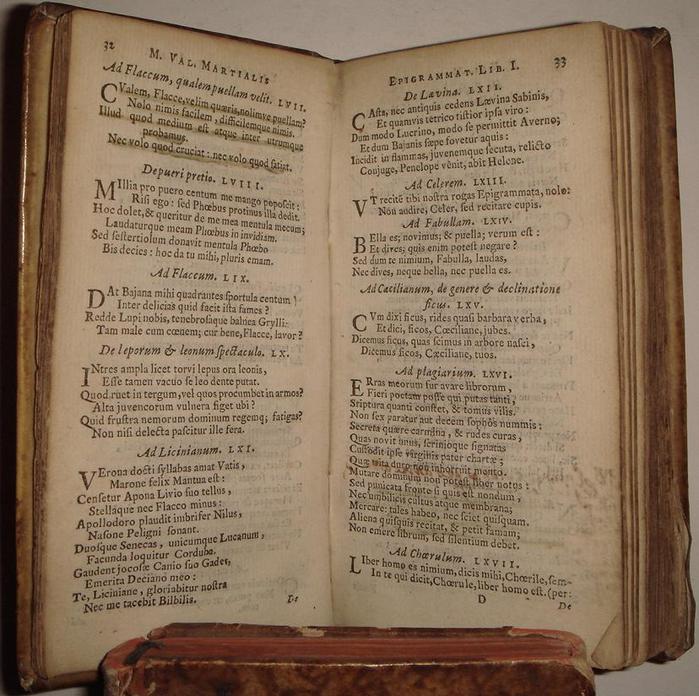 32
M. VAL. MARTIALIS
Ad Flaccum, qualem puellam velit. LVII.
CValem, Flacce, velim quæris, nolimve puellam?
Nolo nimis facilem, difficilemque nimis.
Illud quod medium est atque inter utrumque
probamus.
Nec volo quod cruciat: nec volo quod satiat.
De pueri pretio. LVIII.
MIllia pro puero centum me mango poposcit:
Risi ego: sed Phœbus protinus illa dedit.
Hoc dolet, & queritur de me mea mentula mecum;
Laudaturque meam Phœbus in invidiam.
Sed sestertiolum donavit mentula Phœbo
Bis decies: hoc da tu mihi, pluris emam.
Ad Flaccum. LIX.
DAt Bajana mihi quadrantes sportula centum?
Inter delicias quid facit ista fames?
Redde Lupi nobis, tenebrosaque balnea Grylli:
Tam male cum cœnem; cur bene, Flacce, lavor?
De leporum & leonum spectaculo. LX.
INtres ampla licet torvi lepus ora leonis,
Esse tamen vacuo se leo dente putat.
Quod ruet in tergum, vel quos procumbet in armos?
Alta juvencorum vulnera figet ubi?
Quid frustra nemorum dominum regemq; fatigas?
Non nisi delecta pascitur ille fera.
Ad Licinianum. LXI.
VErona docti syllabas amat Vatis,
Marone felix Mantua est:
Censetur Apona Livio suo tellus,
Stellaque nec Flacco minus:
Apollodoro plaudit imbrifer Nilus,
Nasone Peligni sonant.
Duosque Senecas, unicumque Lucanum,
Facunda loquitur Corduba.
Gaudent jocosæ Canio suo Gades,
Emerita Deciano meo:
Te, Liciniane, gloriabitur nostra
Nec me tacebit Bilbilis.
De
EPIGRAMMAT. LIB. I.
33
De Lævina. LXII.
CAsta, nec antiquis cedens Lævina Sabinis,
Et quamvis tetrico tristior ipsa viro:
Dum modo Lucrino, modo se permittit Averno;
Et dum Bajanis sæpe fovetur aquis:
Incidit in flammas, juvenemque secuta, relicto
Conjuge, Penelope venit, abit Helene.
Ad Celerem. LXIII.
VT recitē tibi nostra rogas Epigrammata, nolo:
Non audire, Celer, sed recitare cupis.
Ad Fabullam. LXIV.
BElla es; novimus; & puella; verum est:
Et dives; quis enim potest negare?
Sed dum te nimium, Fabulla, laudas,
Nec dives, neque bella, nec puella es.
Ad Cæcilianum, de genere & declinatione
ficus. LXV.
CVm dixi ficus, rides quasi barbara verba,
Et dici, ficos, Cœciliane, jubes.
Dicemus ficus, quas scimus in arbore nasci,
Dicemus ficos, Cæciliane, tuos.
Ad plagiarium. LXVI.
ERras meorum fur avare librorum,
Fieri poetam posse qui putas tanti,
Scriptura quanti constet, & tomus vilis.
Non sex paratur aut decem sophos nummis:
Secreta quære carmina, & rudes curas,
Quas novit unus, scrinioque signatas
Custodit ipse virginis pater chartæ;
Quæ trita duro non inhorruit mento.
Mutare dominum non potest liber notus:
Sed pumicata fronte si quis est nondum,
Nec umbilicis cultus atque membrana;
Mercare: tales habeo, nec sciet quisquam.
Aliena quisquis recitat, & petit famam;
Non emere librum, sed silentium debet.
Ad Chœrulum. LXVII.
LIber homo es nimium, dicis mihi, Chœrile, sem-
In te qui dicit, Chœrule, liber homo est. (per:
D
De